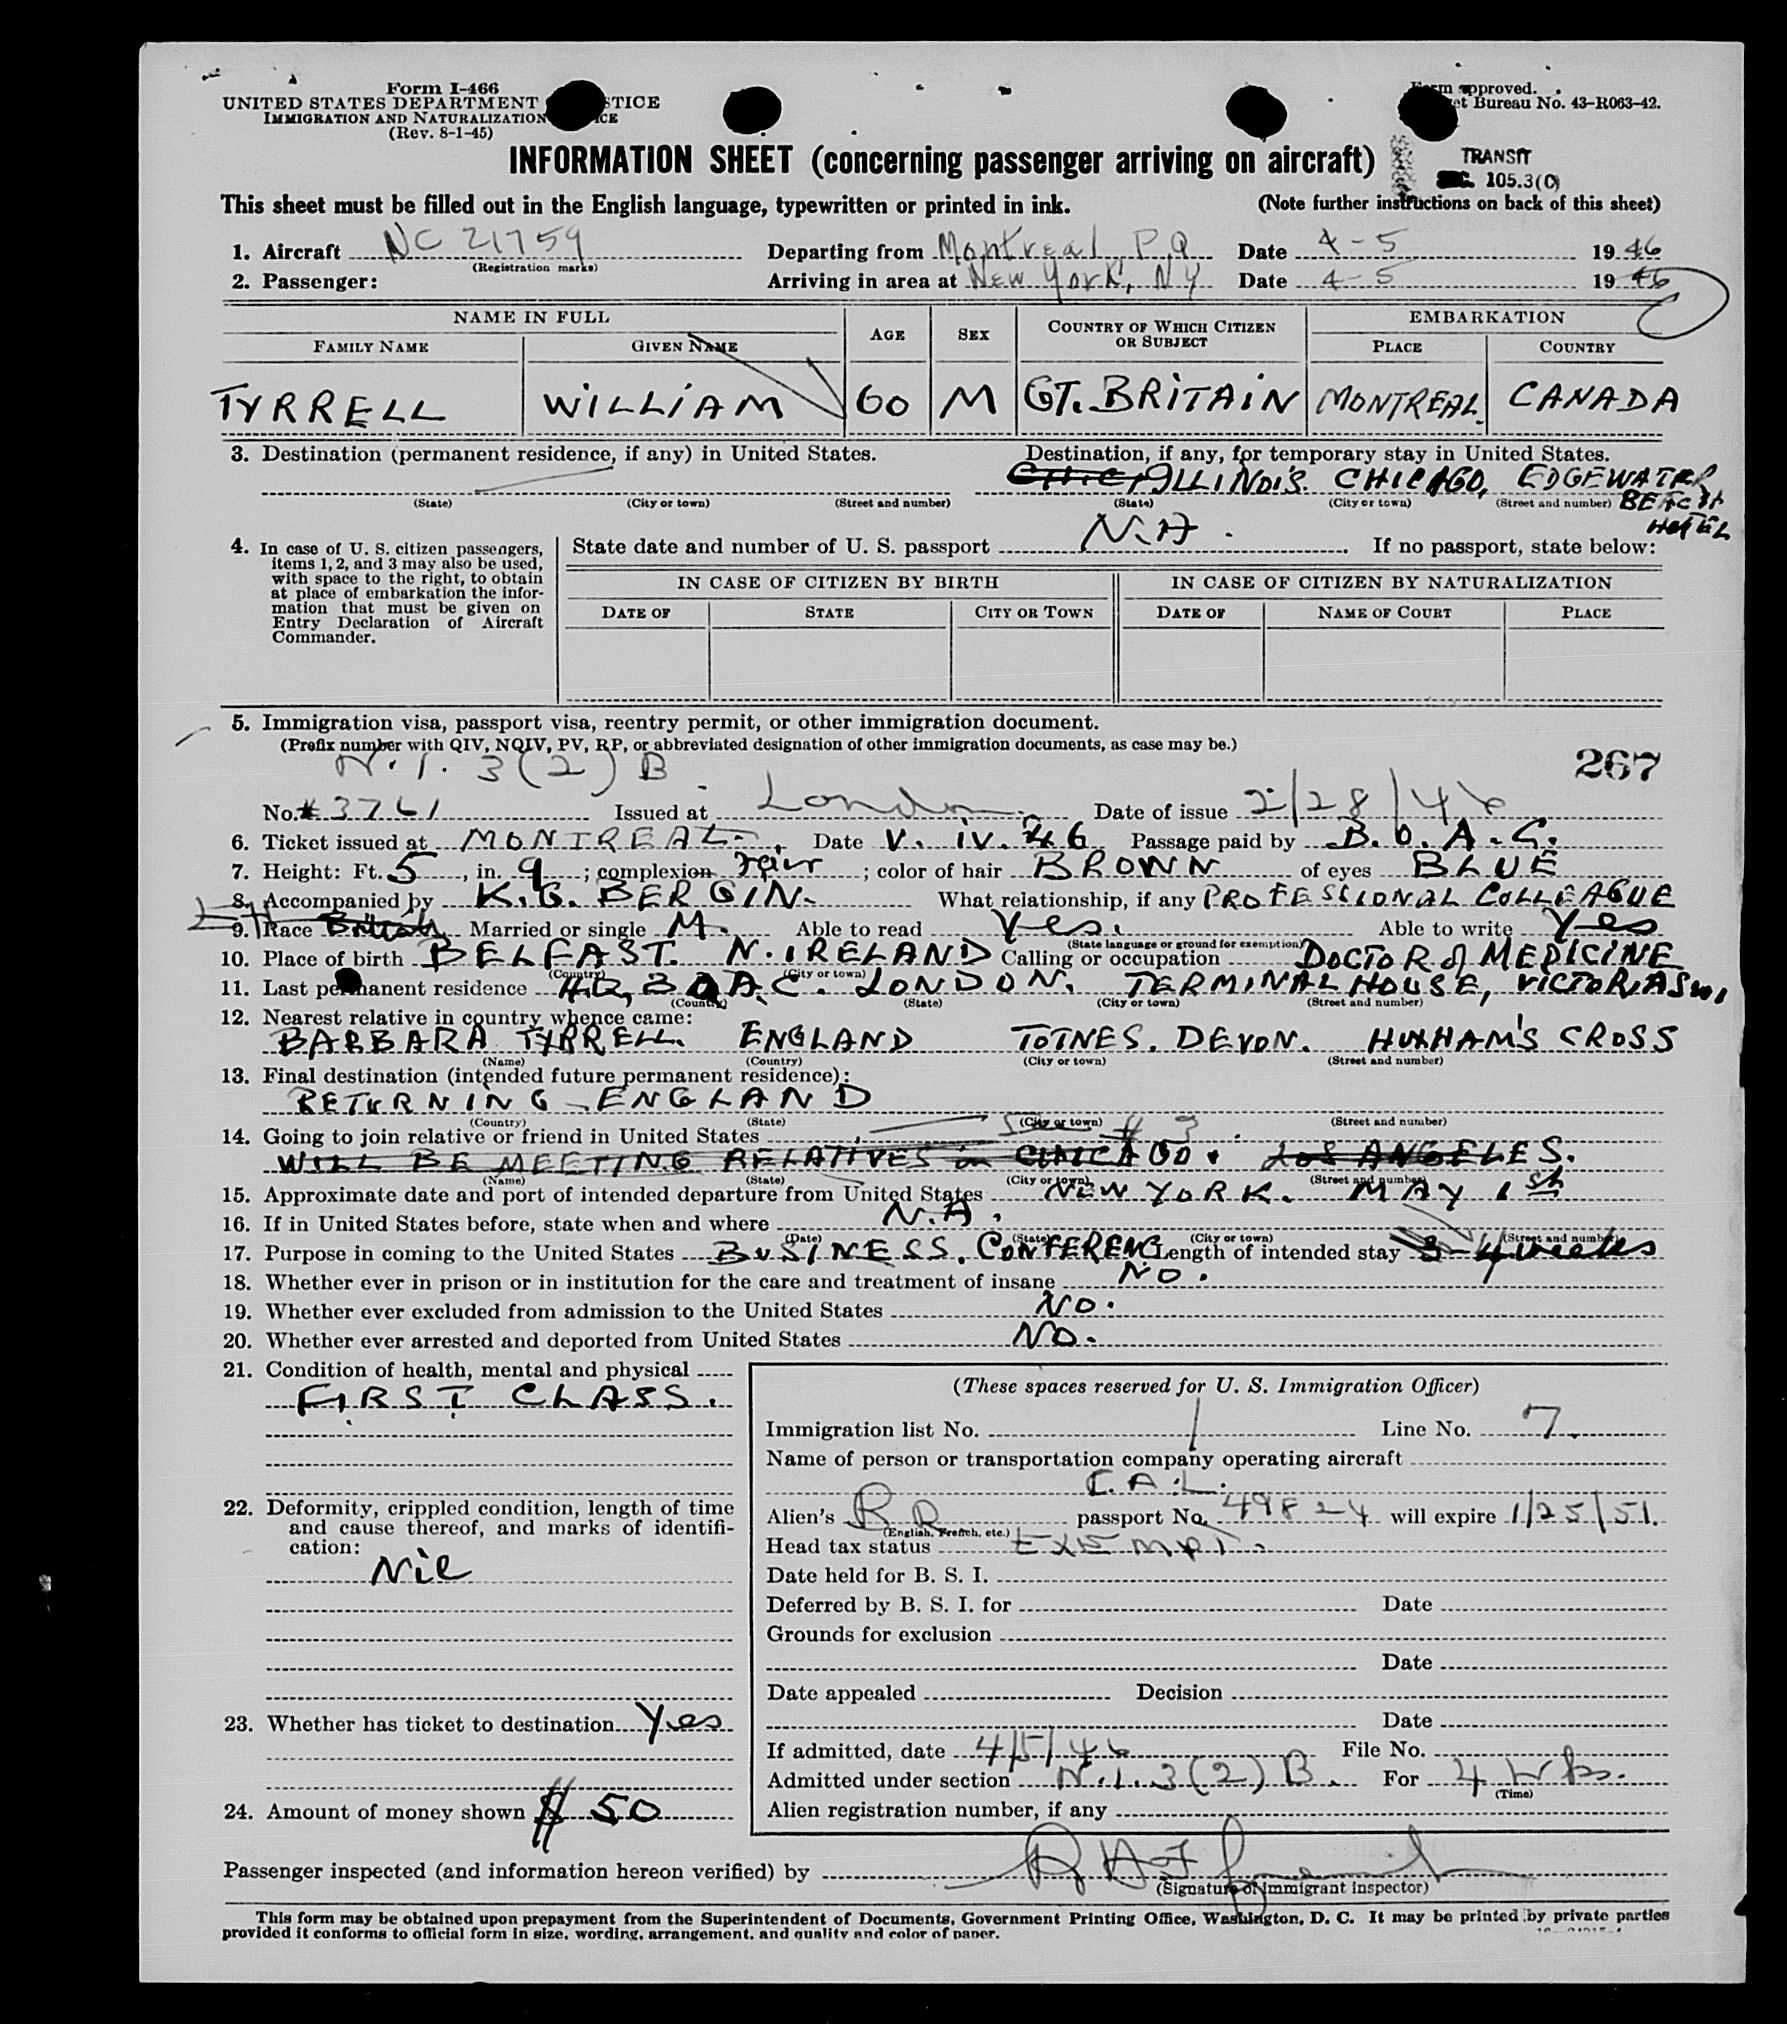 Form I-466
UNITED STATES DEPARTMENT STICE
IMMIGRATION AND NATURALIZATION ICE
(Rev. 8-1-45)
Form approved.
et Bureau No. 43-R063-42.
INFORMATION SHEET (concerning passenger arriving on aircraft)
TRANSIT
SEC. 105.3(C)
This sheet must be filled out in the English language, typewritten or printed in ink. (Note further instructions on back of this sheet)
1. Aircraft NC 21759 Departing from Montreal P.Q Date 4-5 1946
(Registration marks)
2. Passenger: Arriving in area at New York, NY Date 4-5 1946
NAME IN FULL AGE SEX COUNTRY OF WHICH CITIZEN OR SUBJECT EMBARKATION
FAMILY NAME GIVEN NAME PLACE COUNTRY
TYRRELL WILLIAM 60 M GT. BRITAIN MONTREAL CANADA
3. Destination (permanent residence, if any) in United States. Destination, if any, for temporary stay in United States.
ILLINOIS. CHICAGO, EDGEWATER BEACH HOTEL
(State) (City or town) (Street and number) (State) (City or town) (Street and number)
4. In case of U. S. citizen passengers, items 1, 2, and 3 may also be used, with space to the right, to obtain at place of embarkation the information that must be given on Entry Declaration of Aircraft Commander.
State date and number of U. S. passport N.A. If no passport, state below:
IN CASE OF CITIZEN BY BIRTH IN CASE OF CITIZEN BY NATURALIZATION
DATE OF STATE CITY OR TOWN DATE OF NAME OF COURT PLACE
5. Immigration visa, passport visa, reentry permit, or other immigration document.
(Prefix number with QIV, NQIV, PV, RP, or abbreviated designation of other immigration documents, as case may be.)
N.I. 3(2)B
267
No. #3761 Issued at London Date of issue 2/28/46
6. Ticket issued at MONTREAL. Date V. iv. 46 Passage paid by B.O.A.C.
7. Height: Ft. 5, in. 9; complexion Fair; color of hair BROWN of eyes BLUE
8. Accompanied by K.G. BERGIN. What relationship, if any PROFESSIONAL COLLEAGUE
9. Race British Married or single M. Able to read Yes. Able to write Yes
(State language or ground for exemption)
10. Place of birth BELFAST. N. IRELAND Calling or occupation DOCTOR of MEDICINE
(Country) (City or town)
11. Last permanent residence H.Q, B.O.A.C. LONDON. TERMINAL HOUSE, VICTORIA SW1
(Country) (State) (City or town) (Street and number)
12. Nearest relative in country whence came:
BARBARA TYRRELL. ENGLAND TOTNES. DEVON. HUXHAM'S CROSS
(Name) (Country) (City or town) (Street and number)
13. Final destination (intended future permanent residence):
RETURNING ENGLAND
(Country) (State) (City or town) (Street and number)
14. Going to join relative or friend in United States See # 3
WILL BE MEETING RELATIVES in CHICAGO. LOS ANGELES.
(Name) (State) (City or town) (Street and number)
15. Approximate date and port of intended departure from United States NEW YORK. MAY 1st
16. If in United States before, state when and where N.A.
(Date) (State) (City or town) (Street and number)
17. Purpose in coming to the United States BUSINESS. CONFERENC Length of intended stay 3-4 weeks
18. Whether ever in prison or in institution for the care and treatment of insane NO.
19. Whether ever excluded from admission to the United States NO.
20. Whether ever arrested and deported from United States NO.
21. Condition of health, mental and physical
FIRST CLASS.
22. Deformity, crippled condition, length of time and cause thereof, and marks of identification:
Nil
23. Whether has ticket to destination Yes
24. Amount of money shown $ 50
(These spaces reserved for U. S. Immigration Officer)
Immigration list No. 1 Line No. 7
Name of person or transportation company operating aircraft
C.A.L.
Alien's passport No. 49824 will expire 1/25/51.
(English, French, etc.)
Head tax status EXEMPT.
Date held for B. S. I.
Deferred by B. S. I. for Date
Grounds for exclusion
Date
Date appealed Decision
Date
If admitted, date 4/5/46 File No.
Admitted under section N.I. 3(2)B. For 4 wks.
(Time)
Alien registration number, if any
Passenger inspected (and information hereon verified) by
(Signature of immigrant inspector)
This form may be obtained upon prepayment from the Superintendent of Documents, Government Printing Office, Washington, D. C. It may be printed by private parties
provided it conforms to official form in size, wording, arrangement, and quality and color of paper.